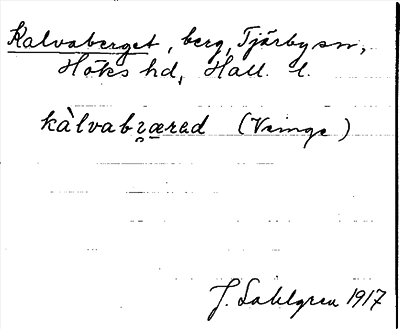 Kalvaberget, berg, Tjärby sn,
Höks hd, Hall. l.
kàlvabɂæred (Veinge)
J. Sahlgren 1917